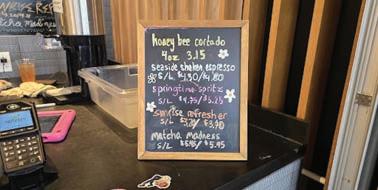 honey bee cortado
4oz 3.15
seaside shaken espresso
S/L $4.30/$4.80
springtime spritz
S/L $4.75/$5.25
sunrise refresher
S/L $3.70
matcha madness
S/L $5.95